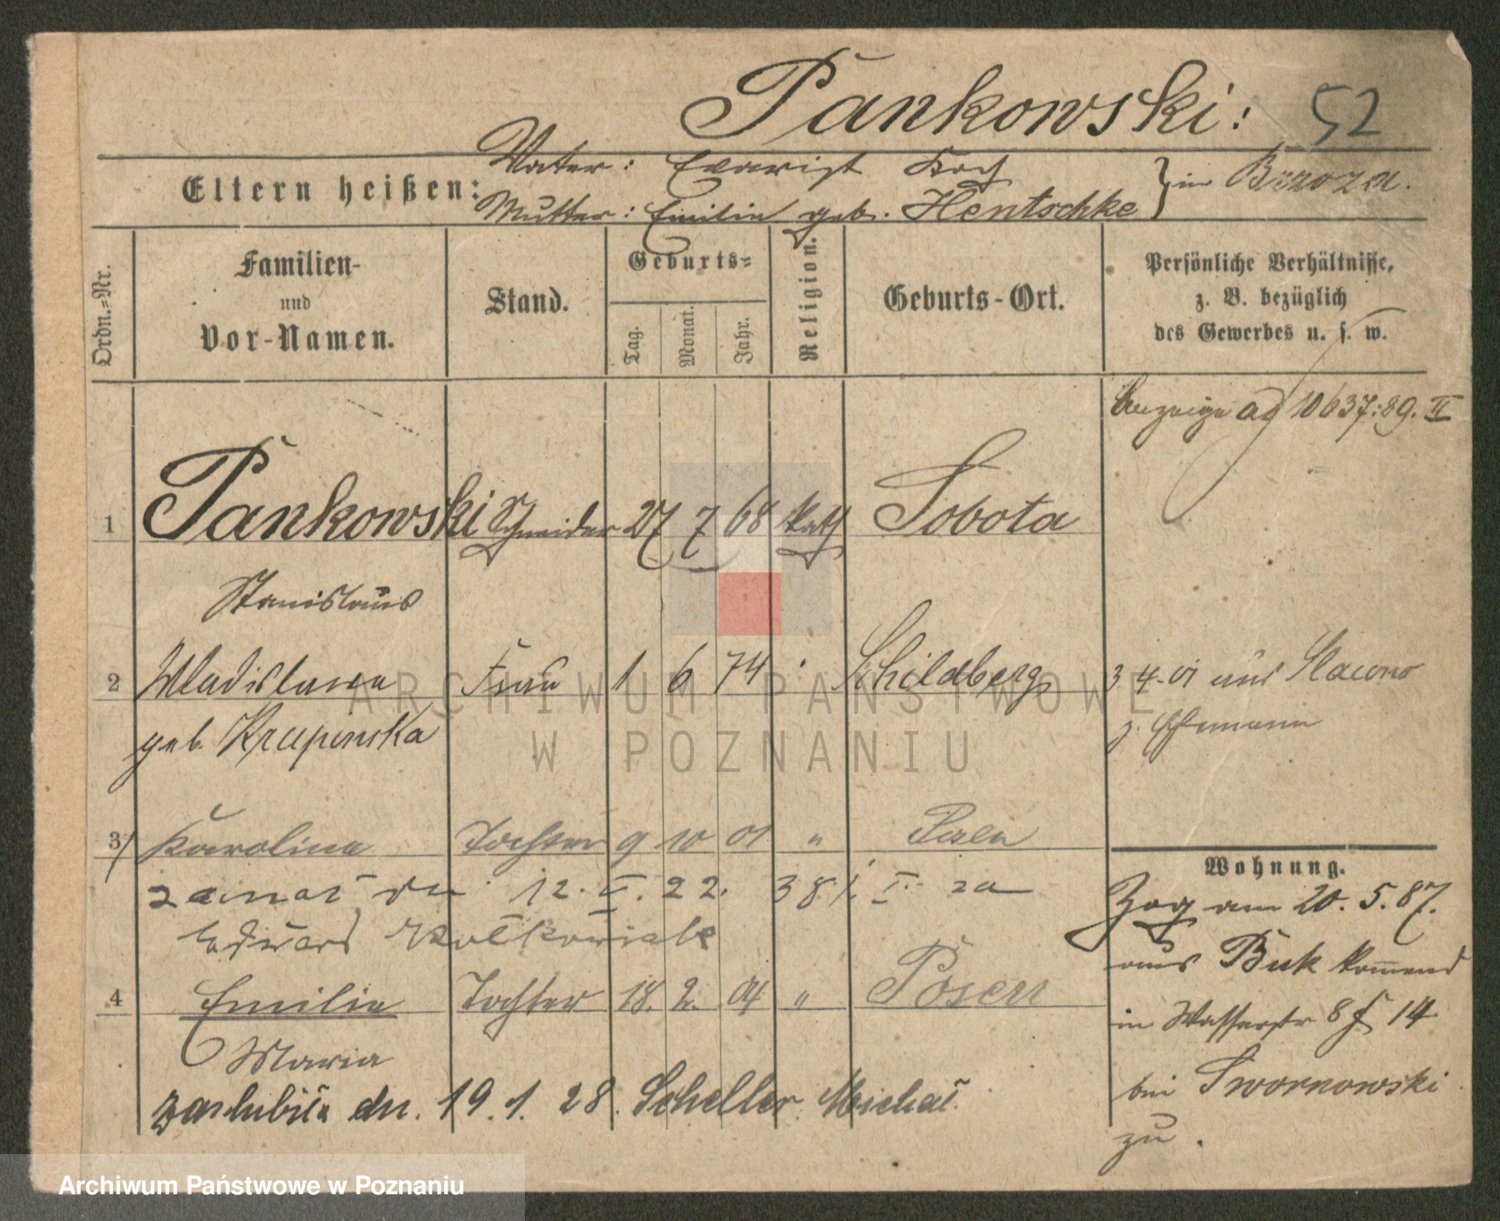 Pankowski: 52
Eltern heißen:
Vater: Evarist
Mutter: Emilia geb. Hentschke } in Brzoza.
Ordn.-Nr.
Familien-
und
Vor-Namen.
Stand.
Geburts-
Tag. Monat. Jahr.
Religion.
Geburts-Ort.
Persönliche Verhältnisse,
z. B. bezüglich
des Gewerbes u. s. w.
Anzeige ad 10637:89. II
1 Pankowski Schneider 27 7 68 kath Sobota
Stanislaus
2 Wladislawa Frau 1 6 74 Schildberg
geb. Krupinska
3-4-01 aus
z. Ehemann
3 Karolina Tochter 9 10 01 " Posen
12. I. 22. 38/ I. za
4 Emilie Tochter 18. 2. 04 " Posen
Maria
zaślubiła dn. 19. 1. 28. Scheller Michał.
Wohnung.
Zog am 20. 5. 87.
aus Buk kommend
in Wasserstr 8 f 14
bei Swornowski
zu.
ARCHIWUM PAŃSTWOWE
W POZNANIU
Archiwum Państwowe w Poznaniu